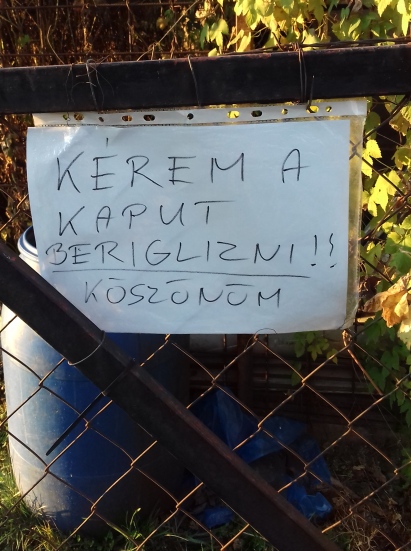 KÉREM A
KAPUT
BERIGLIZNI!!
KÖSZÖNÖM